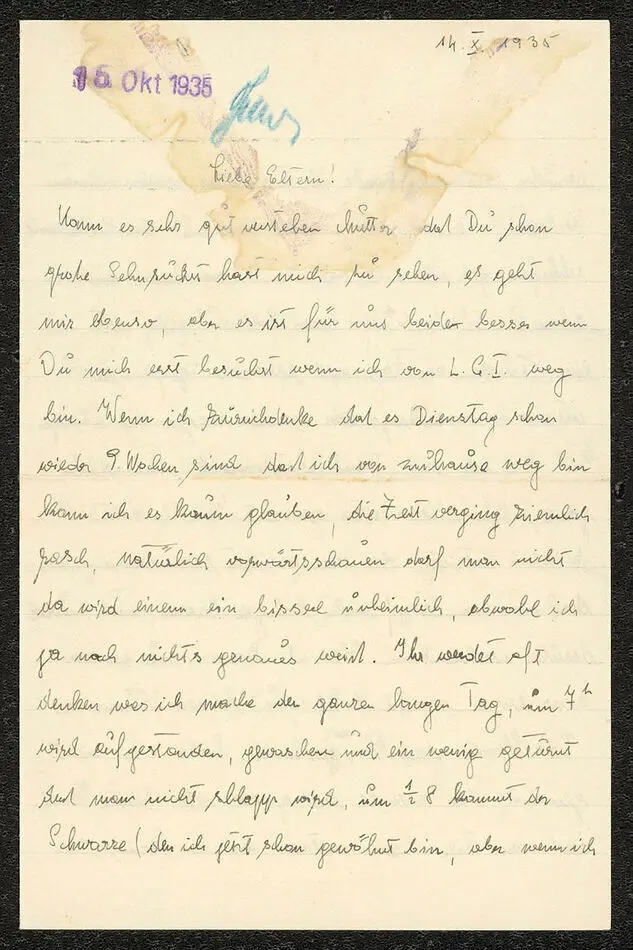 14. X. 1935
15. Okt 1935
Liebe Eltern!
Kann es sehr gut verstehen Mutter daß Du schon
große Sehnsucht hast mich zu sehen, es geht
mir ebenso, aber es ist für uns beide besser wenn
Du mich erst besuchst wenn ich vom L. G. I. weg
bin. Wenn ich zurückdenke daß es Dienstag schon
wieder 9 Wochen sind daß ich von zuhause weg bin
kann ich es kaum glauben, die Zeit verging ziemlich
rasch, natürlich vorwärtsschauen darf man nicht
da wird einem ein bissel unheimlich, obwohl ich
ja noch nichts genaues weiß. Ihr werdet oft
denken was ich mache den ganzen langen Tag, um 7 h
wird aufgestanden, gewaschen und ein wenig geturnt
daß man nicht schlapp wird, um ½ 8 kommt der
Schwarze (den ich jetzt schon gewöhnt bin, aber wenn ich